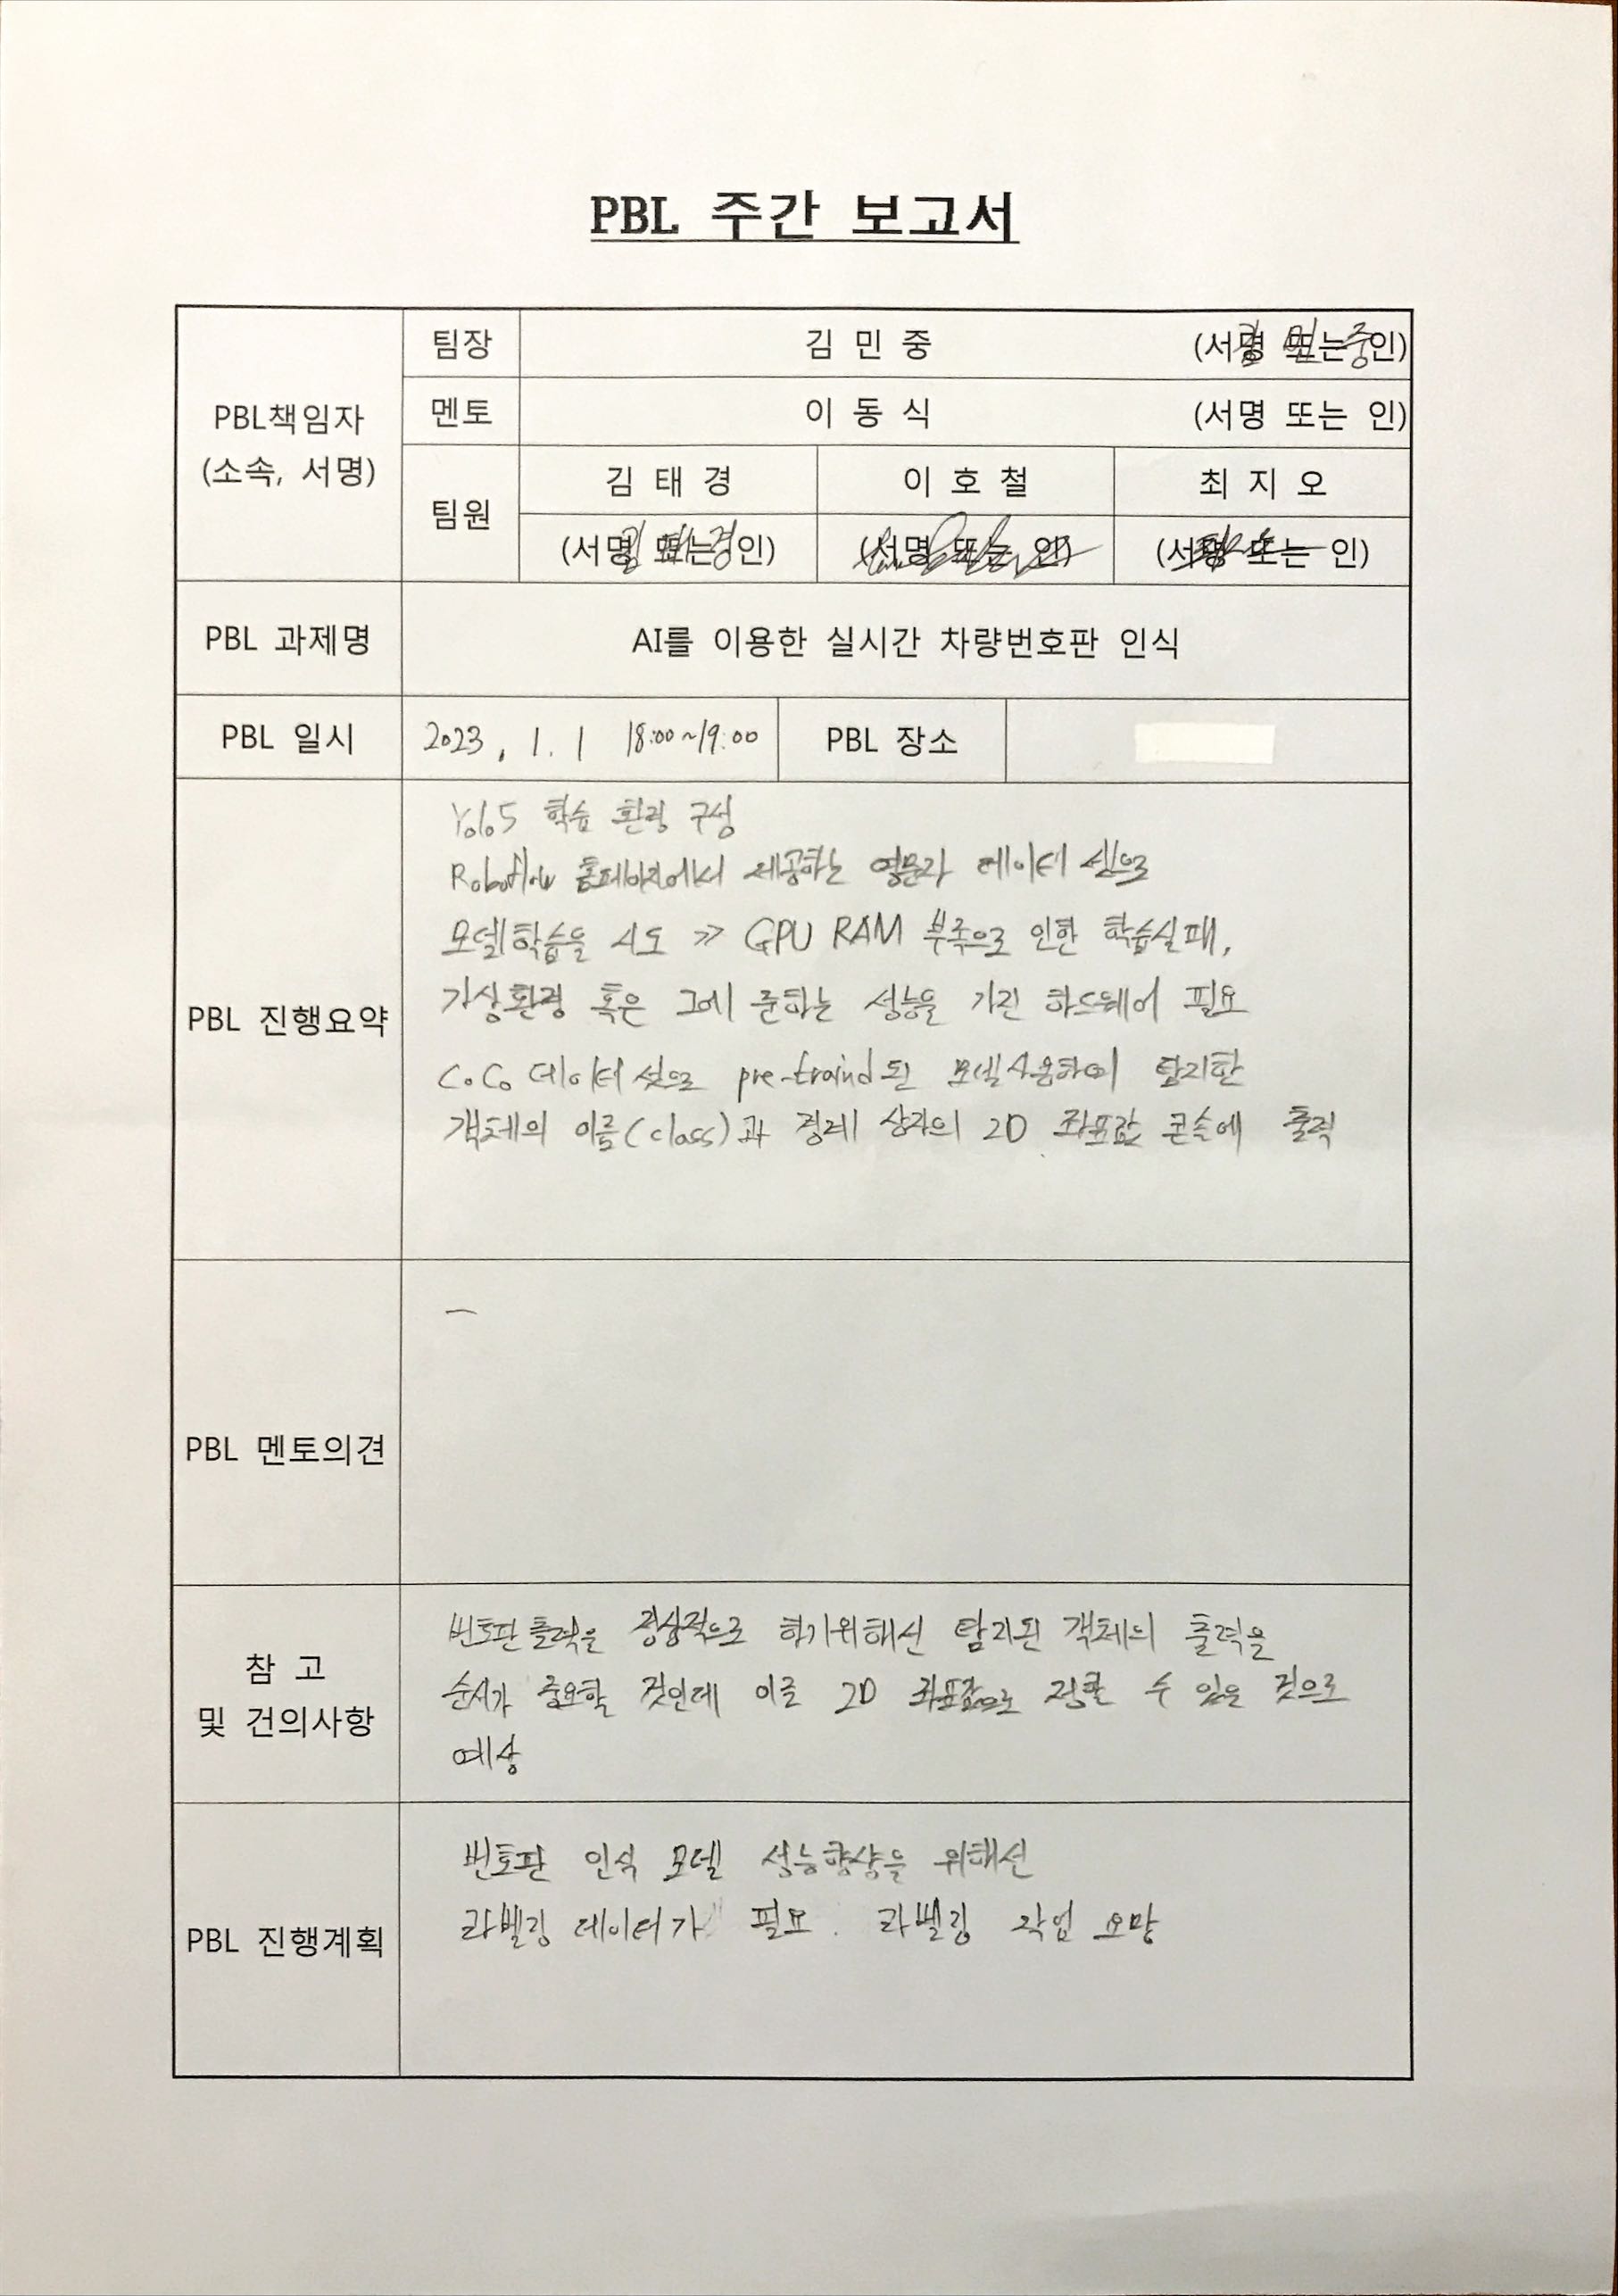 PBL 주간 보고서
PBL책임자
(소속, 서명)
팀장
김 민 중
(서명 또는 인)
김민중
멘토
이 동 식
(서명 또는 인)
팀원
김 태 경
이 호 철
최 지 오
(서명 또는 인)
김태경
(서명 또는 인)
(서명 또는 인)
PBL 과제명
AI를 이용한 실시간 차량번호판 인식
PBL 일시
2023, 1. 1 18:00~19:00
PBL 장소
PBL 진행요약
Yolo5 학습 환경 구성
Roboflow 홈페이지에서 제공하는 영문자 데이터 셋으로
모델학습을 시도 >> GPU RAM 부족으로 인한 학습실패,
가상환경 혹은 그에 준하는 성능을 가진 하드웨어 필요
CoCo 데이터 셋으로 pre-traind된 모델사용하여 탐지한
객체의 이름(class)과 경계 상자의 2D 좌표값 콘솔에 출력
PBL 멘토의견
-
참 고
및 건의사항
번호판 출력을 정상적으로 하기위해선 탐지된 객체의 출력을
순서가 중요할 것인데 이를 2D 좌표값으로 정할 수 있을 것으로
예상
PBL 진행계획
번호판 인식 모델 성능향상을 위해선
라벨링 데이터가 필요. 라벨링 작업 요망